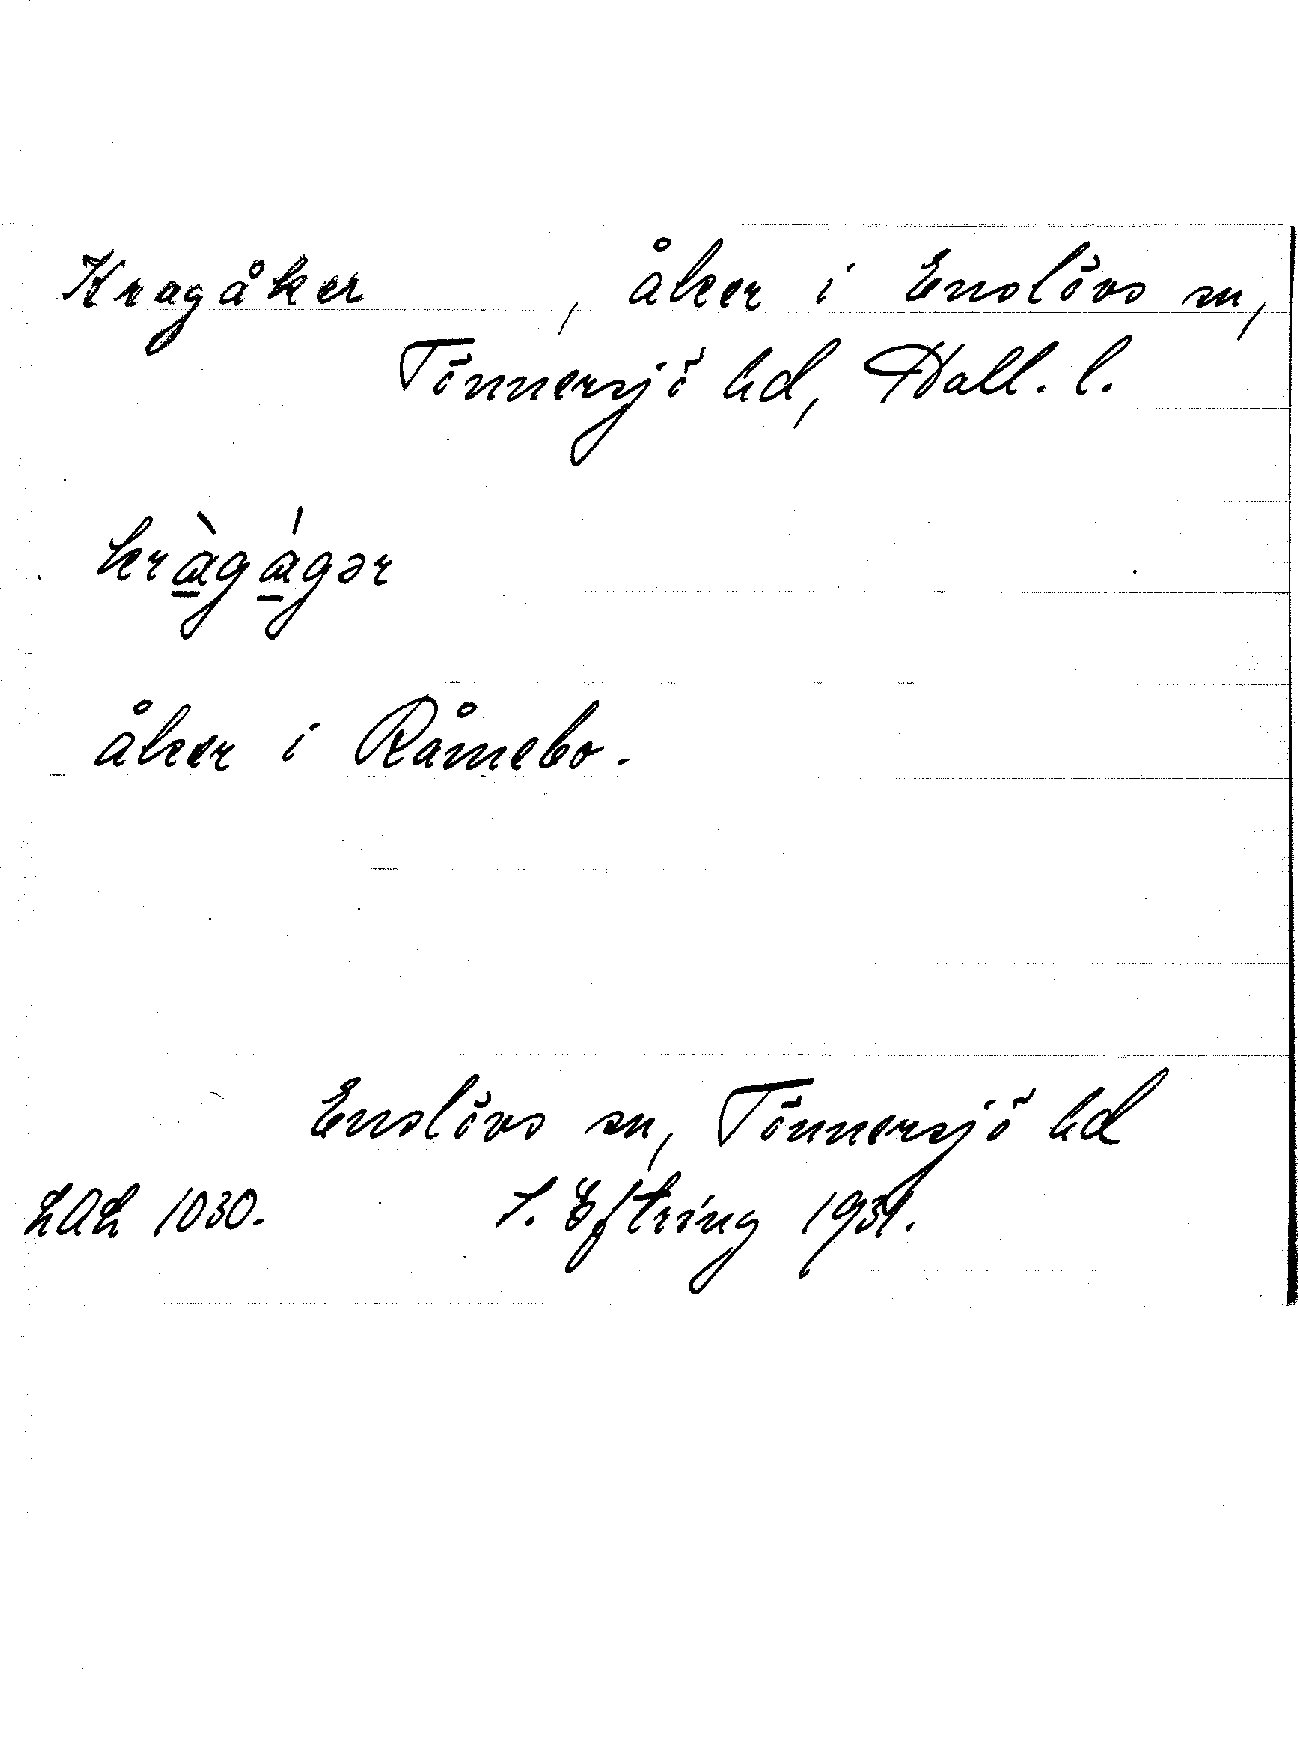 Kragåker , åker i Enslövs sn,
Tönnersjö hd, Hall. l.
kràgágər
åker i Råmebo.
Enslövs sn, Tönnersjö hd
LAL 1030. S. Eftring 1931.